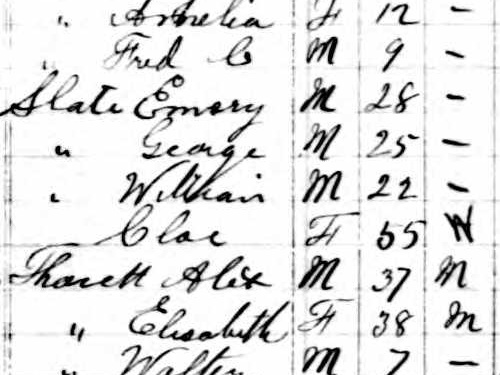 " Amelia F 12 -
" Fred C M 9 -
Slate Emory M 28 -
" George M 25 -
" William M 22 -
Cloe F 55 W
Alex M 37 M
" Elisabeth F 38 M
" Walter M 7 -